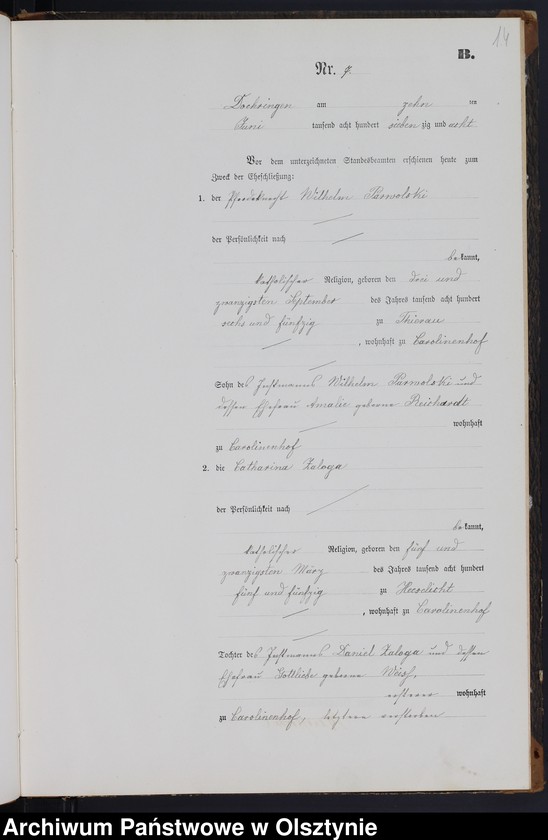 14
B.
Nr. 7.
Doehringen am zehn ten
Juni tausend acht hundert sieben zig und acht
Vor dem unterzeichneten Standesbeamten erschienen heute zum
Zweck der Eheschließung:
1. der Pferdeknecht Wilhelm Parwolski
der Persönlichkeit nach
bekannt,
katholischer Religion, geboren den drei und
zwanzigsten September des Jahres tausend acht hundert
sechs und fünfzig zu Thierau
, wohnhaft zu Carolinenhof
Sohn des Instmanns Wilhelm Parwolski und
dessen Ehefrau Amalie geborne Reichardt
wohnhaft
zu Carolinenhof
2. die Catharina Zaloga
der Persönlichkeit nach
bekannt,
katholischer Religion, geboren den fünf und
zwanzigsten März des Jahres tausend acht hundert
fünf und fünfzig zu Heeselicht
, wohnhaft zu Carolinenhof
Tochter des Instmanns Daniel Zaloga und dessen
Ehefrau Gottliebe geborne Weiß,
ersterer wohnhaft
zu Carolinenhof, letztere verstorben
Archiwum Państwowe w Olsztynie